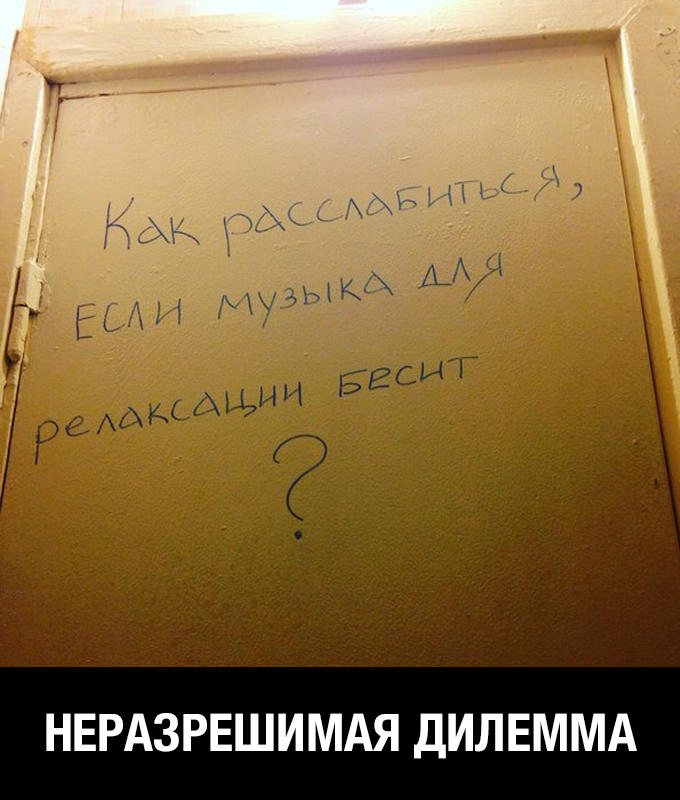 Как расслабиться,
если музыка для
релаксации бесит
?
НЕРАЗРЕШИМАЯ ДИЛЕММА